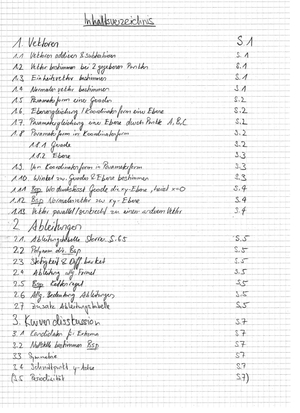 Inhaltsverzeichnis
1. Vektoren S.1
1.1 Vektoren addieren & subtrahieren S.1
1.2 Vektor bestimmen bei 2 gegebenen Punkten S.1
1.3 Einheitsvektor bestimmen S.1
1.4 Normalenvektor bestimmen S.1
1.5 Parameterform einer Geraden S.2
1.6 Ebenengleichung / Koordinatenform einer Ebene S.2
1.7 Parametergleichung einer Ebene durch Punkte A, B, C S.2
1.8 Parameterform in Koordinatenform S.2
1.8.1 Gerade S.2
1.8.2 Ebene S.3
1.9. Von Koordinatenform in Parameterform S.3
1.10. Winkel zw. Geraden & Ebene bestimmen S.3
1.11 Bsp Wo durchstösst Gerade die xy-Ebene, heisst z=0 S.4
1.12 Bsp Normalenvektor zur xy-Ebene S.4
1.13 Vektor parallel/senkrecht zu einem anderen Vektor S.4
2. Ableitungen S.5
2.1. Ableitungstabelle Storrer S.65 S.5
2.2 Polynom abl. Bsp S.5
2.3 Stetigkeit & Diff.barkeit S.5
2.4 Ableitung allg. Formel S.5
2.5 Bsp Kettenregel S.5
2.6 Allg. Bedeutung Ableitungen S.5
2.7 Zusatz Ableitungstabelle S.5
3. Kurvendiskussion S.7
3.1 Kandidaten für Extrema S.7
3.2 Nullstelle bestimmen Bsp S.7
3.3 Symmetrie S.7
3.4 Schnittpunkt y-Achse S.7
(3.5 Periodizität S.7)